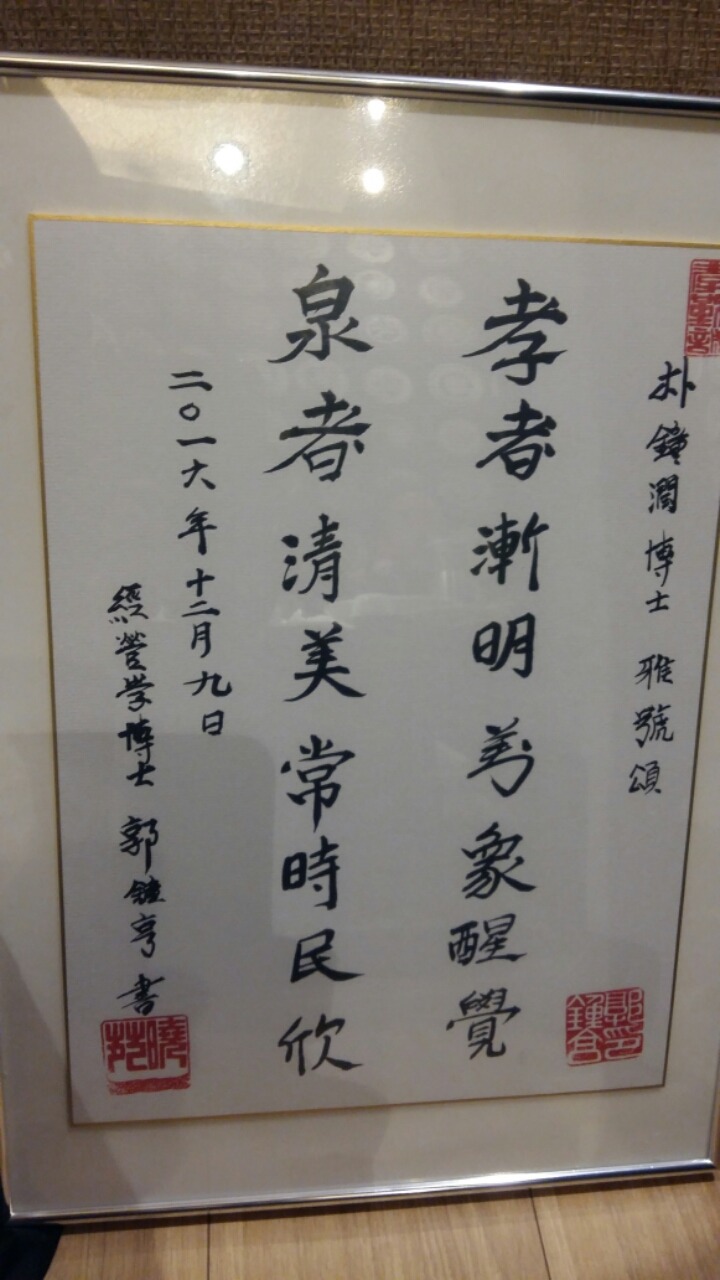 朴鐘潤博士 雅號頌
孝者漸明萬象醒覺
泉者清美常時民欣
二〇一六年十二月九日
經營学博士 郭鐘亨 書